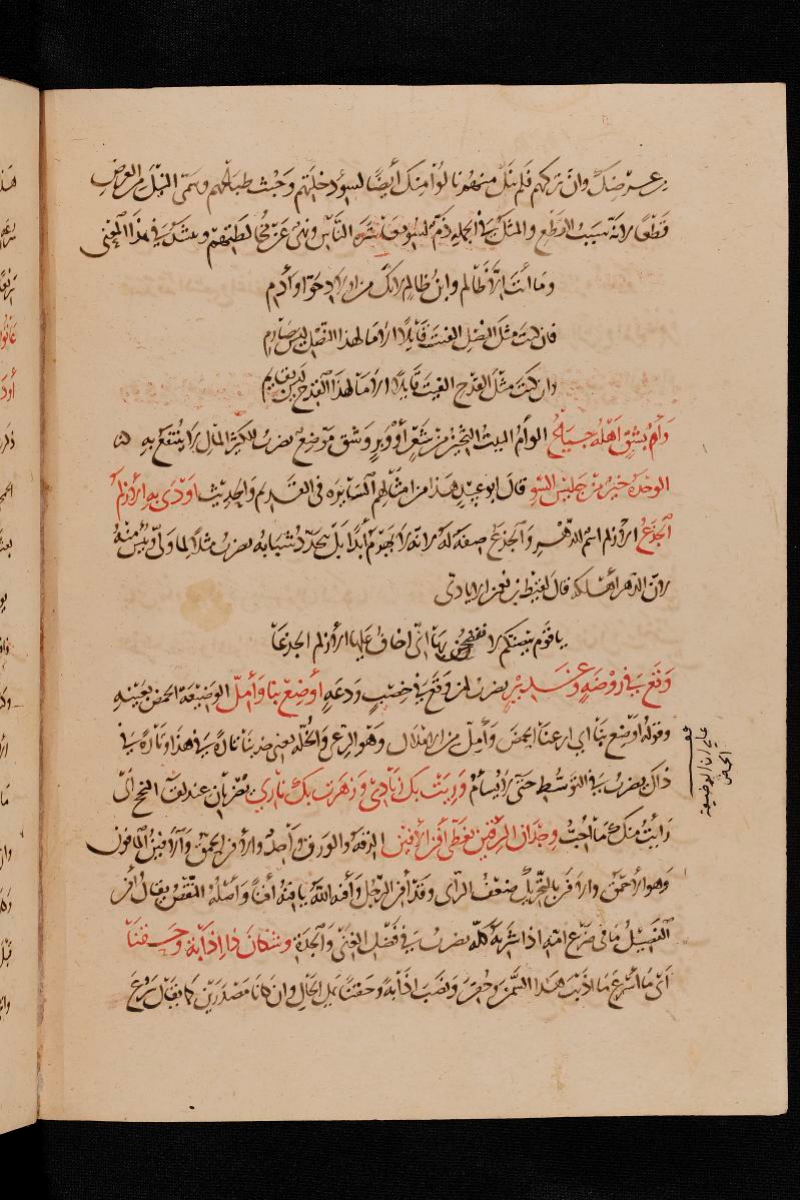 من عرضك وان تركتهم فلم تنل منهم نالوا منك أيضا لسوء دخلتهم وخبث طباعهم وسمى النيل من العرض
قطعا لانه سبب القطع والمثل في الجملة ذم لسوء معاشرة الناس ونهى عن مخالطتهم وينشد في هذا المعنى
وما أنت الا ظالم وابن ظالم لانك من اولاد حوا وآدم
فان كنت مثل النصل الفيت قائلا الا ما لهذا النصل ليس بصارم
وان كنت مثل القدح الفيت قائلا الا ما لهذا القدح ليس بقايم
وأم بشق اهله جياع الوأم البيت الثخين من شعر أو وبر وشق موضع يضرب للكثير المال لا ينتفع به
الوحدة خير من جليس السوء قال ابو عبيد هذا من امثالهم السائرة في القديم والحديث اودى به الازلم
الجذع الازلم اسم الدهر والجذع صفة له لانه لا يهرم أبدا بل يتجدد شبابه يضرب مثلا لما ولى ويئس منه
لان الدهر اهلكه قال لقيط بن يعمر الايادى
يا قوم بيضتكم لا تفضحن بها انى اخاف عليها الازلم الجذعا
وقع في روضة وغدير يضرب لمن وقع في خصب ودعة أوضع بنا وأمل الوضيعة الحمض بعينه
وقوله أوضع بنا اي ارعنا الحمض وأمل من الاملال وهو الرعى والخلة يعنى خذ بنا تارة في هذا وتارة في
ذاك يضرب في التوسط حتى لا يسأم وريت بك زنادى وزهرت بك نارى يضربان عند لقاء النجح اى
رأيت منك ما احب وجدان الرقين يغطى أفن الافين الرقة والورق واحد والافن الحمق والافين المافون
وهو الاحمق والافن بالتحريك ضعف الرأى وقد أفن الرجل وأفنه الله يافنه أفنا واصله النقص يقال أفن
الفصيل ما في ضرع امه اذا شربه كله يضرب في فضل الغنى والجدة وشكان ذا اذابة وحقنا
اى ما أسرع ما اذيب هذا السمن وحقن ونصب اذابة وحقنا على الحال وان كانا مصدرين كما يقال سرع